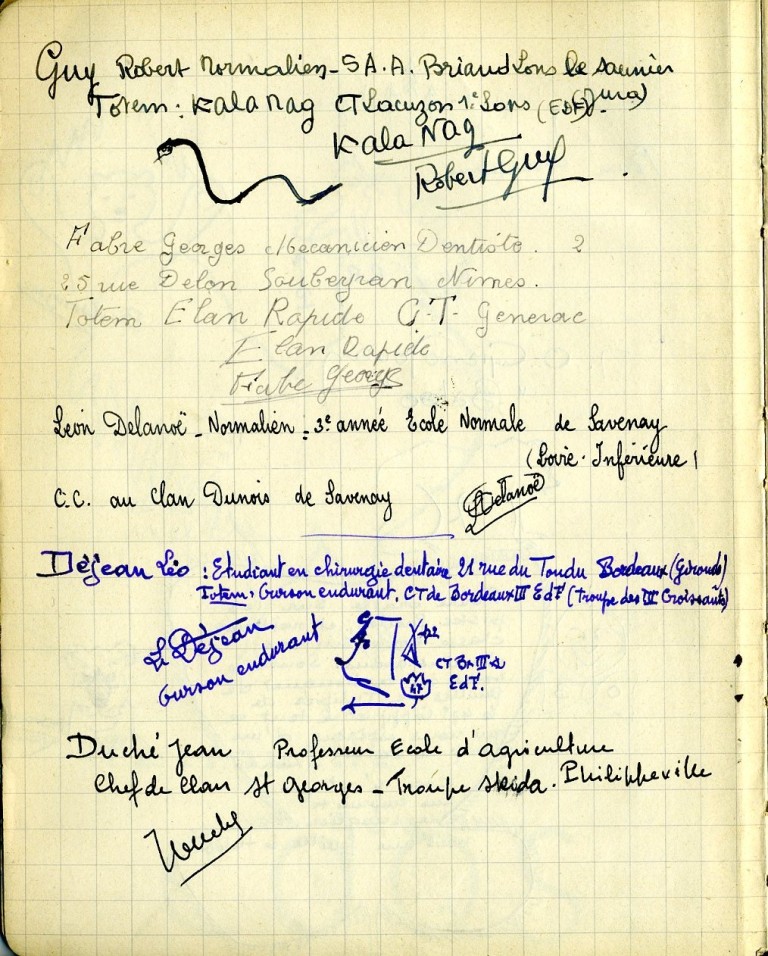 Guy Robert Normalien - 5 A. A. Briand Lons le Saunier
Totem : Kala Nag CT Lacuzon 1e Lons (EDF) (Jura)
Kala Nag
Robert Guy
Fabre Georges Mecanicien Dentiste. 2
25 rue Delon Soubeyran Nimes.
Totem Elan Rapide C.T. Generac
Elan Rapide
Fabre Georges
Léon Delanoë - Normalien : 3e année Ecole Normale de Savenay
(Loire-Inférieure)
C.C. au Clan Dunois de Savenay
Delanoë
Déjean Léo : Etudiant en chirurgie dentaire 21 rue du Tondu Bordeaux (Gironde)
Totem : Ourson endurant. CT de Bordeaux III EdF (Troupe des III Croissants)
L. Déjean
Ourson endurant
CT Bx III
EdF.
Duché Jean Professeur Ecole d'agriculture
Chef de Clan St Georges - Troupe Skida. Philippeville